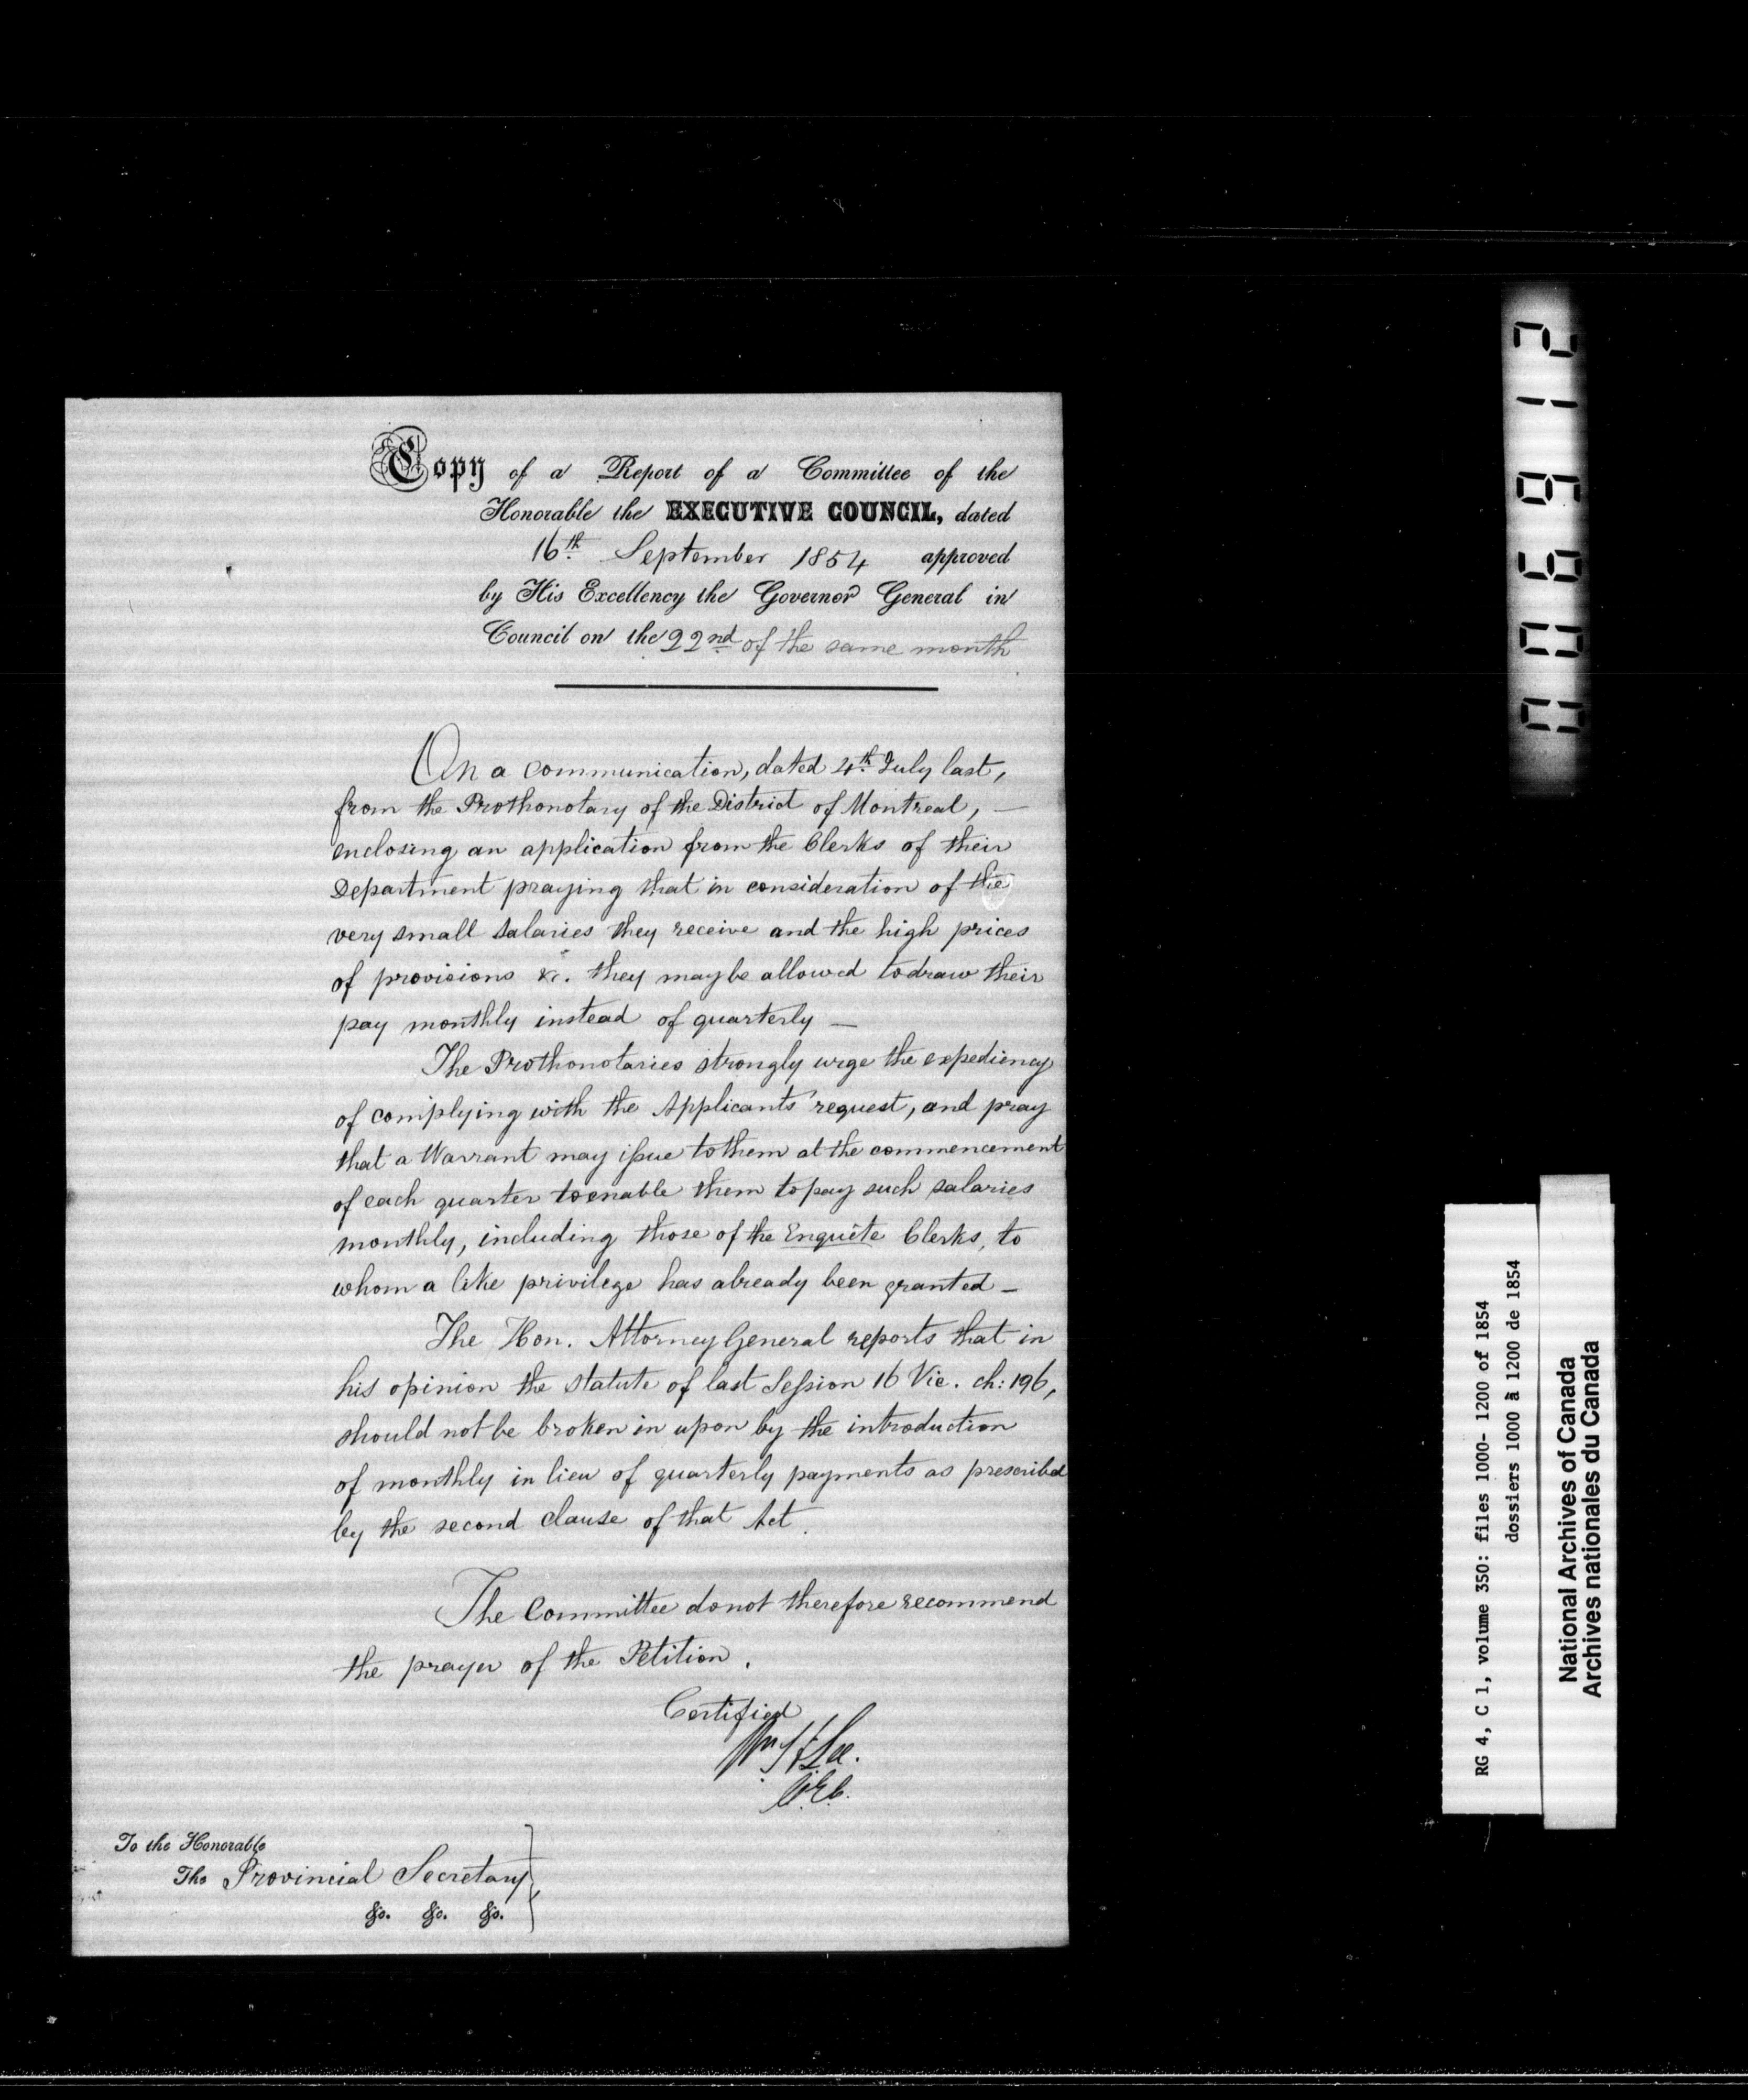 Copy of a Report of a Committee of the
Honorable the EXECUTIVE COUNCIL, dated
16th September 1854 approved
by His Excellency the Governor General in
Council on the 22nd of the same month
On a communication, dated 4th July last,
from the Prothonotary of the District of Montreal, —
enclosing an application from the Clerks of their
Department praying that in consideration of the
very small salaries they receive and the high prices
of provisions &c. they may be allowed to draw their
pay monthly instead of quarterly —
The Prothonotaries strongly urge the expediency
of complying with the Applicants' request, and pray
that a Warrant may issue to them at the commencement
of each quarter to enable them to pay such salaries
monthly, including those of the Enquête Clerks, to
whom a like privilege has already been granted —
The Hon. Attorney General reports that in
his opinion the statute of last Session 16 Vic. ch: 196,
should not be broken in upon by the introduction
of monthly in lieu of quarterly payments as prescribed
by the second clause of that Act.
The Committee do not therefore recommend
the prayer of the Petition.
Certified
Wm H Lee.
C.E.C.
To the Honorable
The Provincial Secretary
&c. &c. &c.
006912
RG 4, C 1, volume 350: files 1000- 1200 of 1854
dossiers 1000 à 1200 de 1854
National Archives of Canada
Archives nationales du Canada